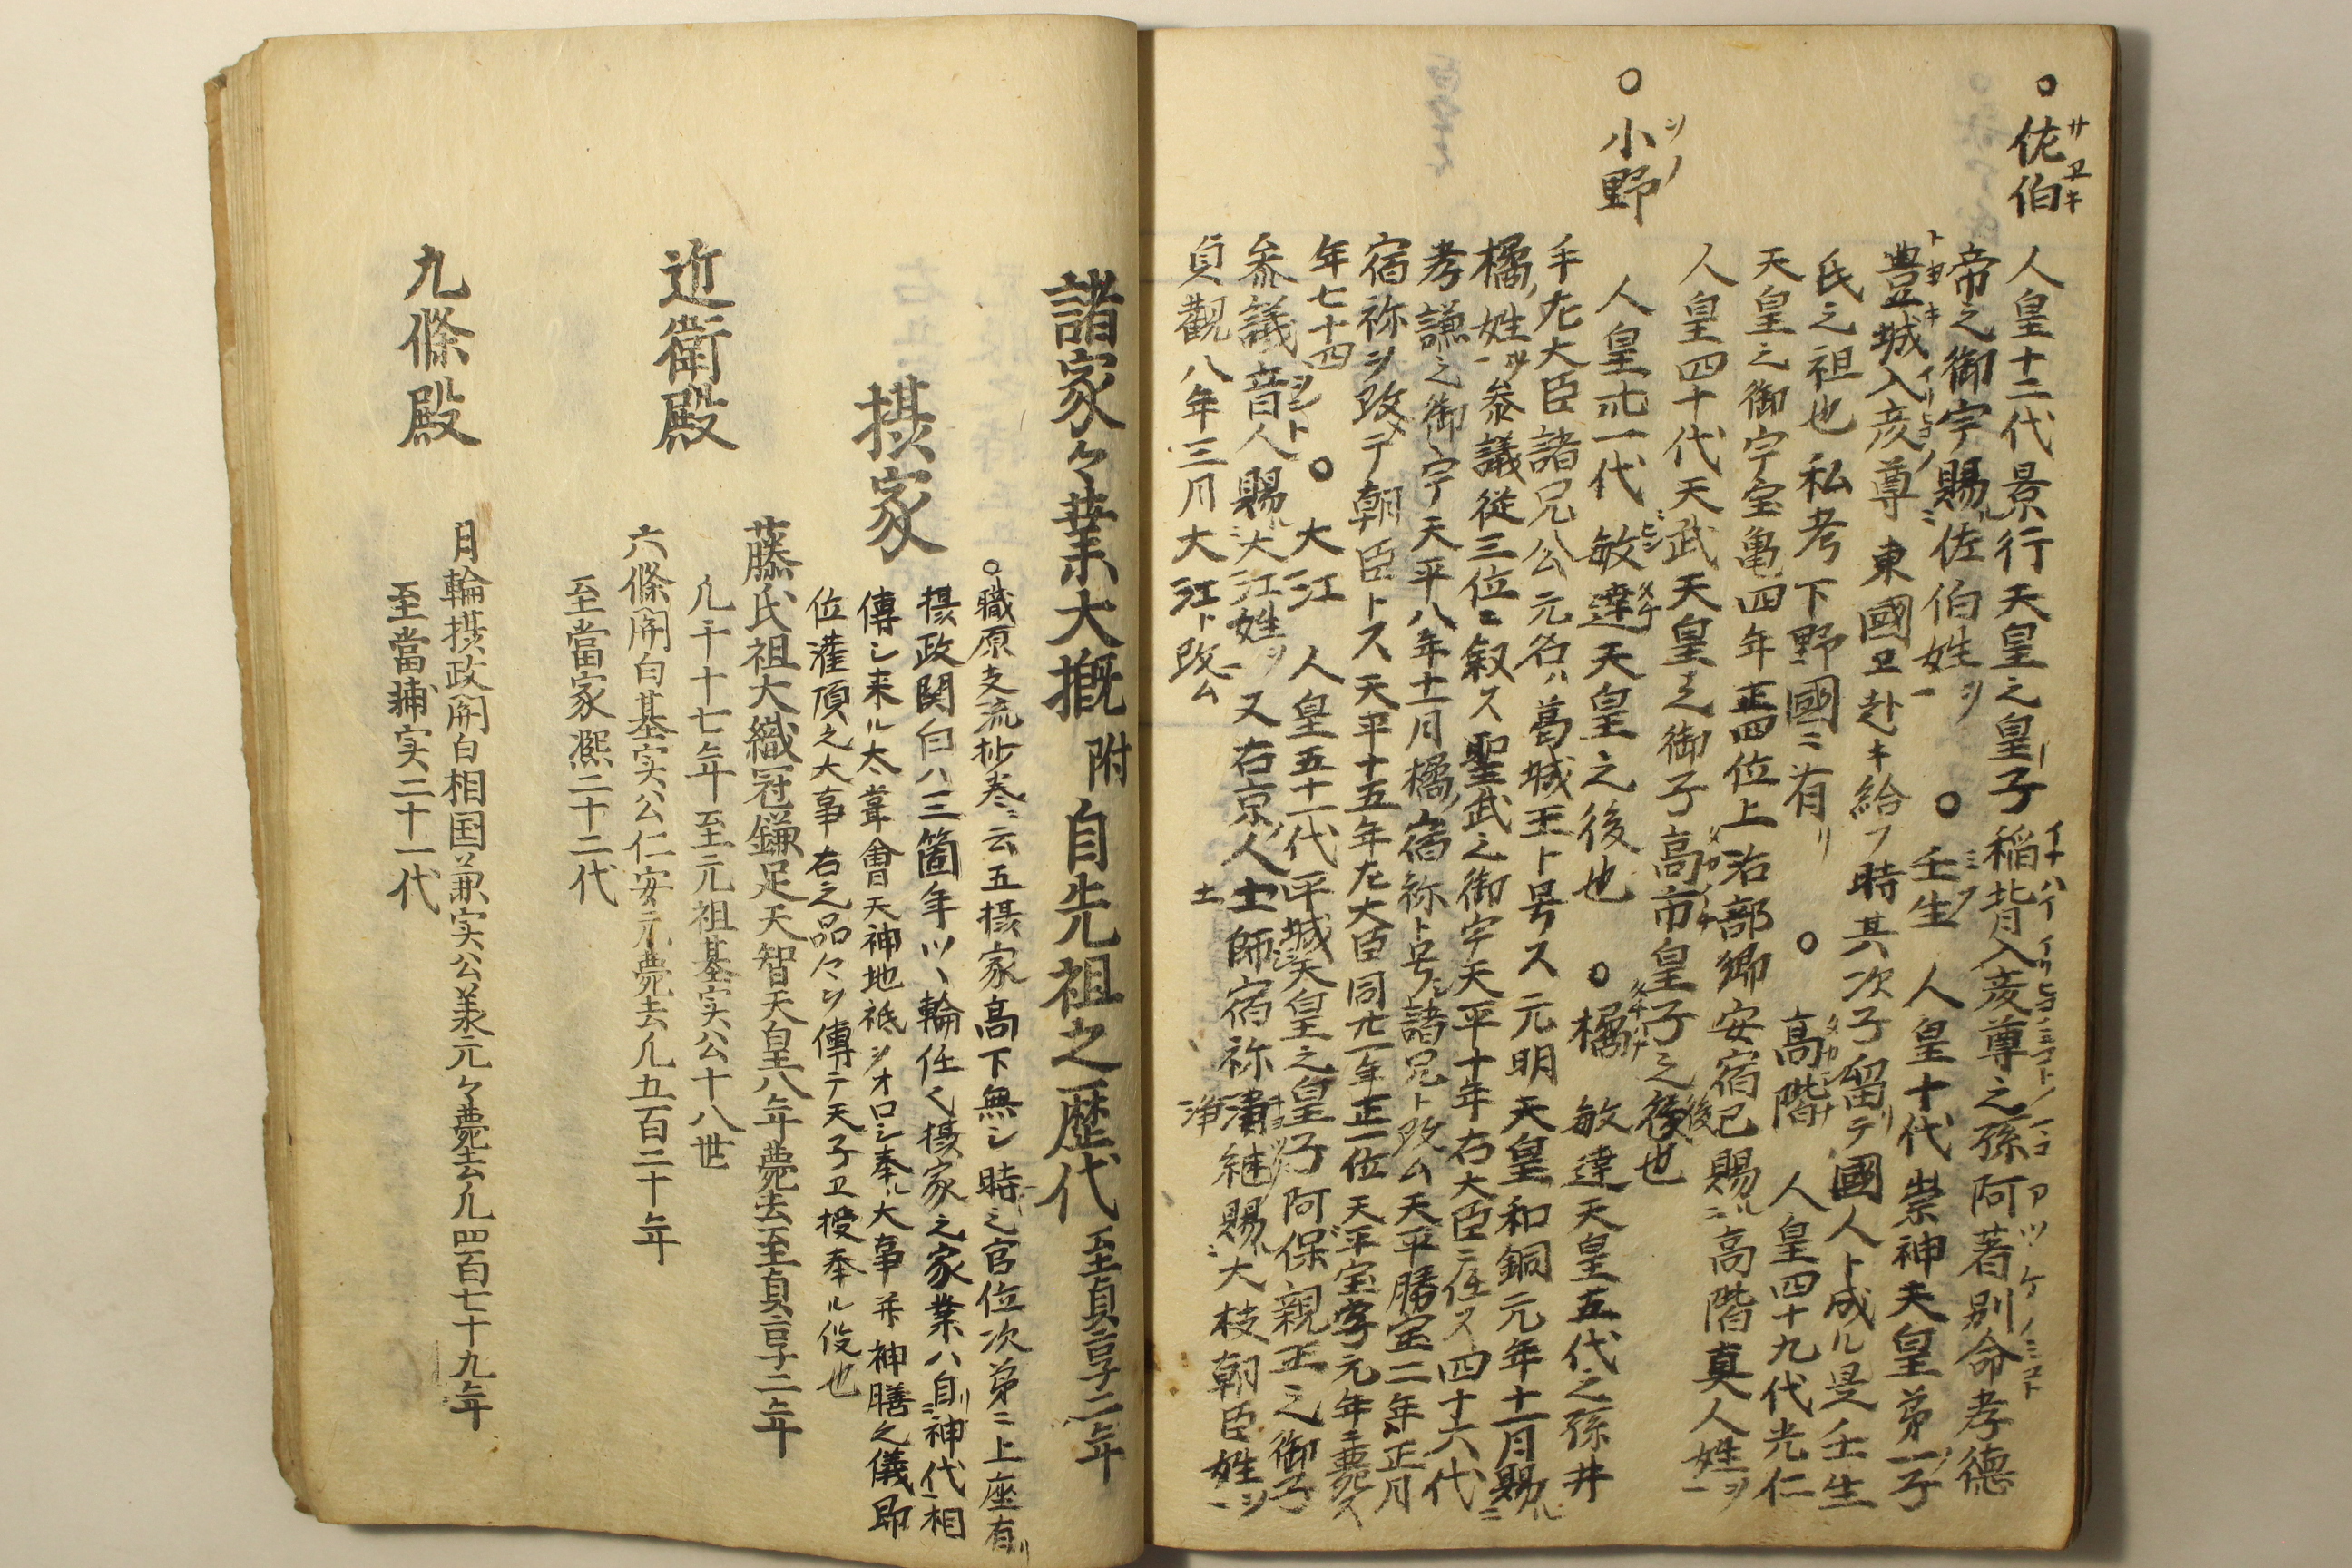 ○佐伯 人皇十二代景行天皇之皇子稲背入彦尊之孫阿著別命孝德
帝之御宇賜佐伯姓ヲ ○壬生 人皇十代崇神天皇第一子
豊城入彦尊東國ヱ赴キ給フ時其次子留テ國人ト成ル是壬生
氏之祖也私考下野國ニ有リ ○高階 人皇四十九代光仁
天皇之御宇宝亀四年正四位上治部卿安宿已後賜高階真人姓ヲ
人皇四十代天武天皇之御子高市皇子之後也
○小野 人皇卅一代敏達天皇之後也 ○橘 敏達天皇五代之孫井
手左大臣諸兄公元名ハ葛城王ト号ス元明天皇和銅元年十一月賜
橘姓ヲ参議従三位ニ叙ス聖武之御宇天平十年右大臣ニ任ス四十六代
孝謙之御宇天平八年十一月橘宿祢ト号シ諸兄ト改ム天平勝宝二年正月
宿祢ヲ改テ朝臣トス天平十五年左大臣同廿一年正一位天平宝字元年ニ薨ス
年七十四 ○大江 人皇五十一代平城天皇之皇子阿保親王之御子
参議音人賜大江姓ヲ又右京人土師宿祢浄継賜大枝朝臣姓ヲ
貞觀八年三月大江ト改ム
諸家々業大概附自先祖之歴代至貞享二年
○職原支流抄巻ニ云五摂家高下無シ時之官位次第ニ上座有リ
摂家
摂政関白ハ三箇年ツヽ輪任く摂家之家業ハ自神代相
傳シ来ル太嘗會日天神地祇ヲオロシ奉ル大事并神膳之儀即
位灌頂之大事右之品々ヲ傳テ天子ヱ授奉ル役也
藤氏祖大織冠鎌足天智天皇八年薨去至貞享二年
凡千十七年至元祖基实公十八世
近衛殿
六條関白基実公仁安元薨去凡五百二十年
至當家熙二十二代
九條殿
月輪摂政関白相国兼实公羕元々薨去凡四百七十九年
至當輔实二十一代